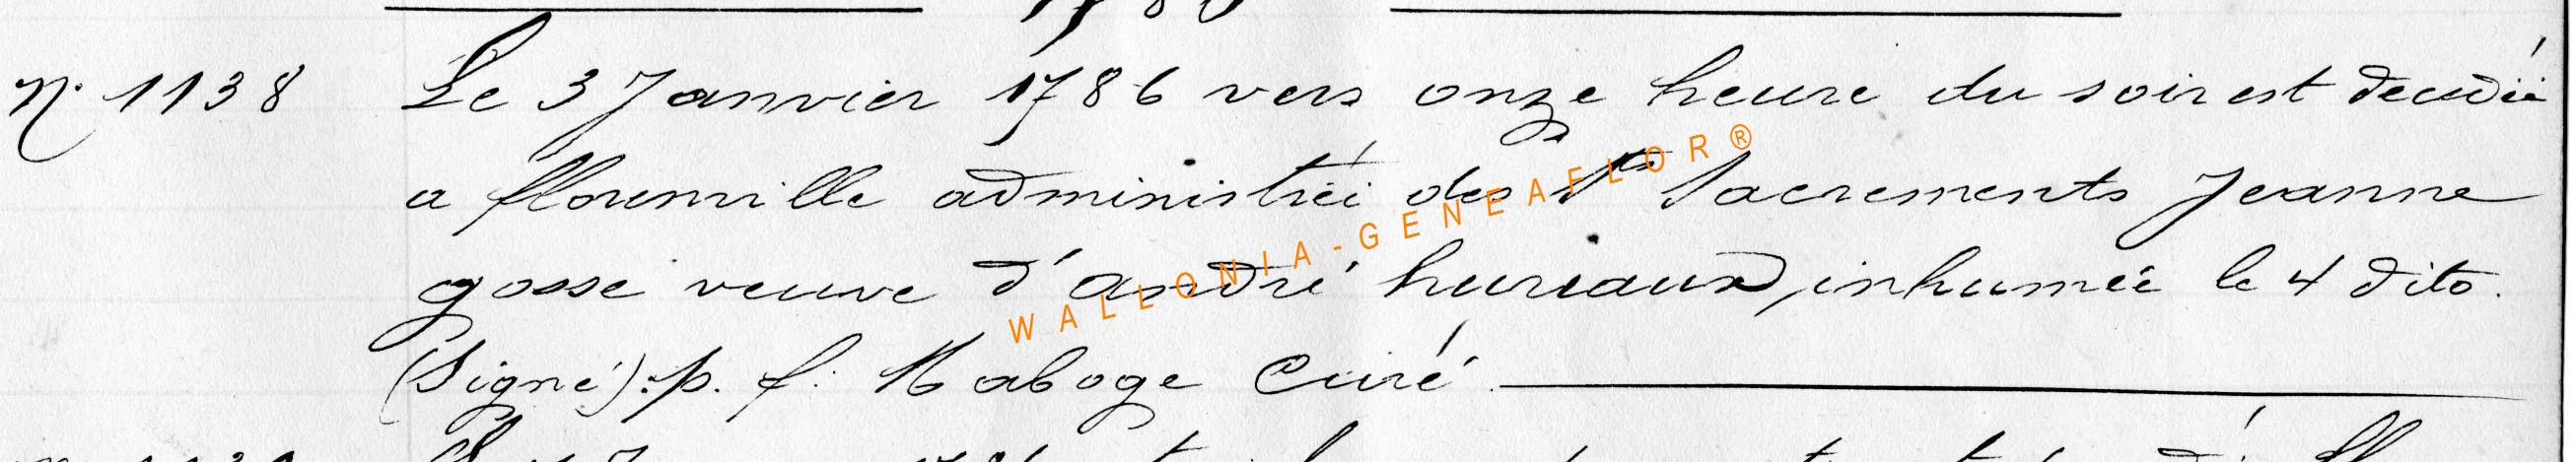 N. 1138 Le 3 Janvier 1786 vers onze heure du soir est decedée
a florenville administrée des Sts Sacrements Jeanne
gosse veuve d'andré huriaux, inhumée le 4 dito.
(Signé): p. f. Maboge Curé.
WALLONIA-GENEAFLOR®